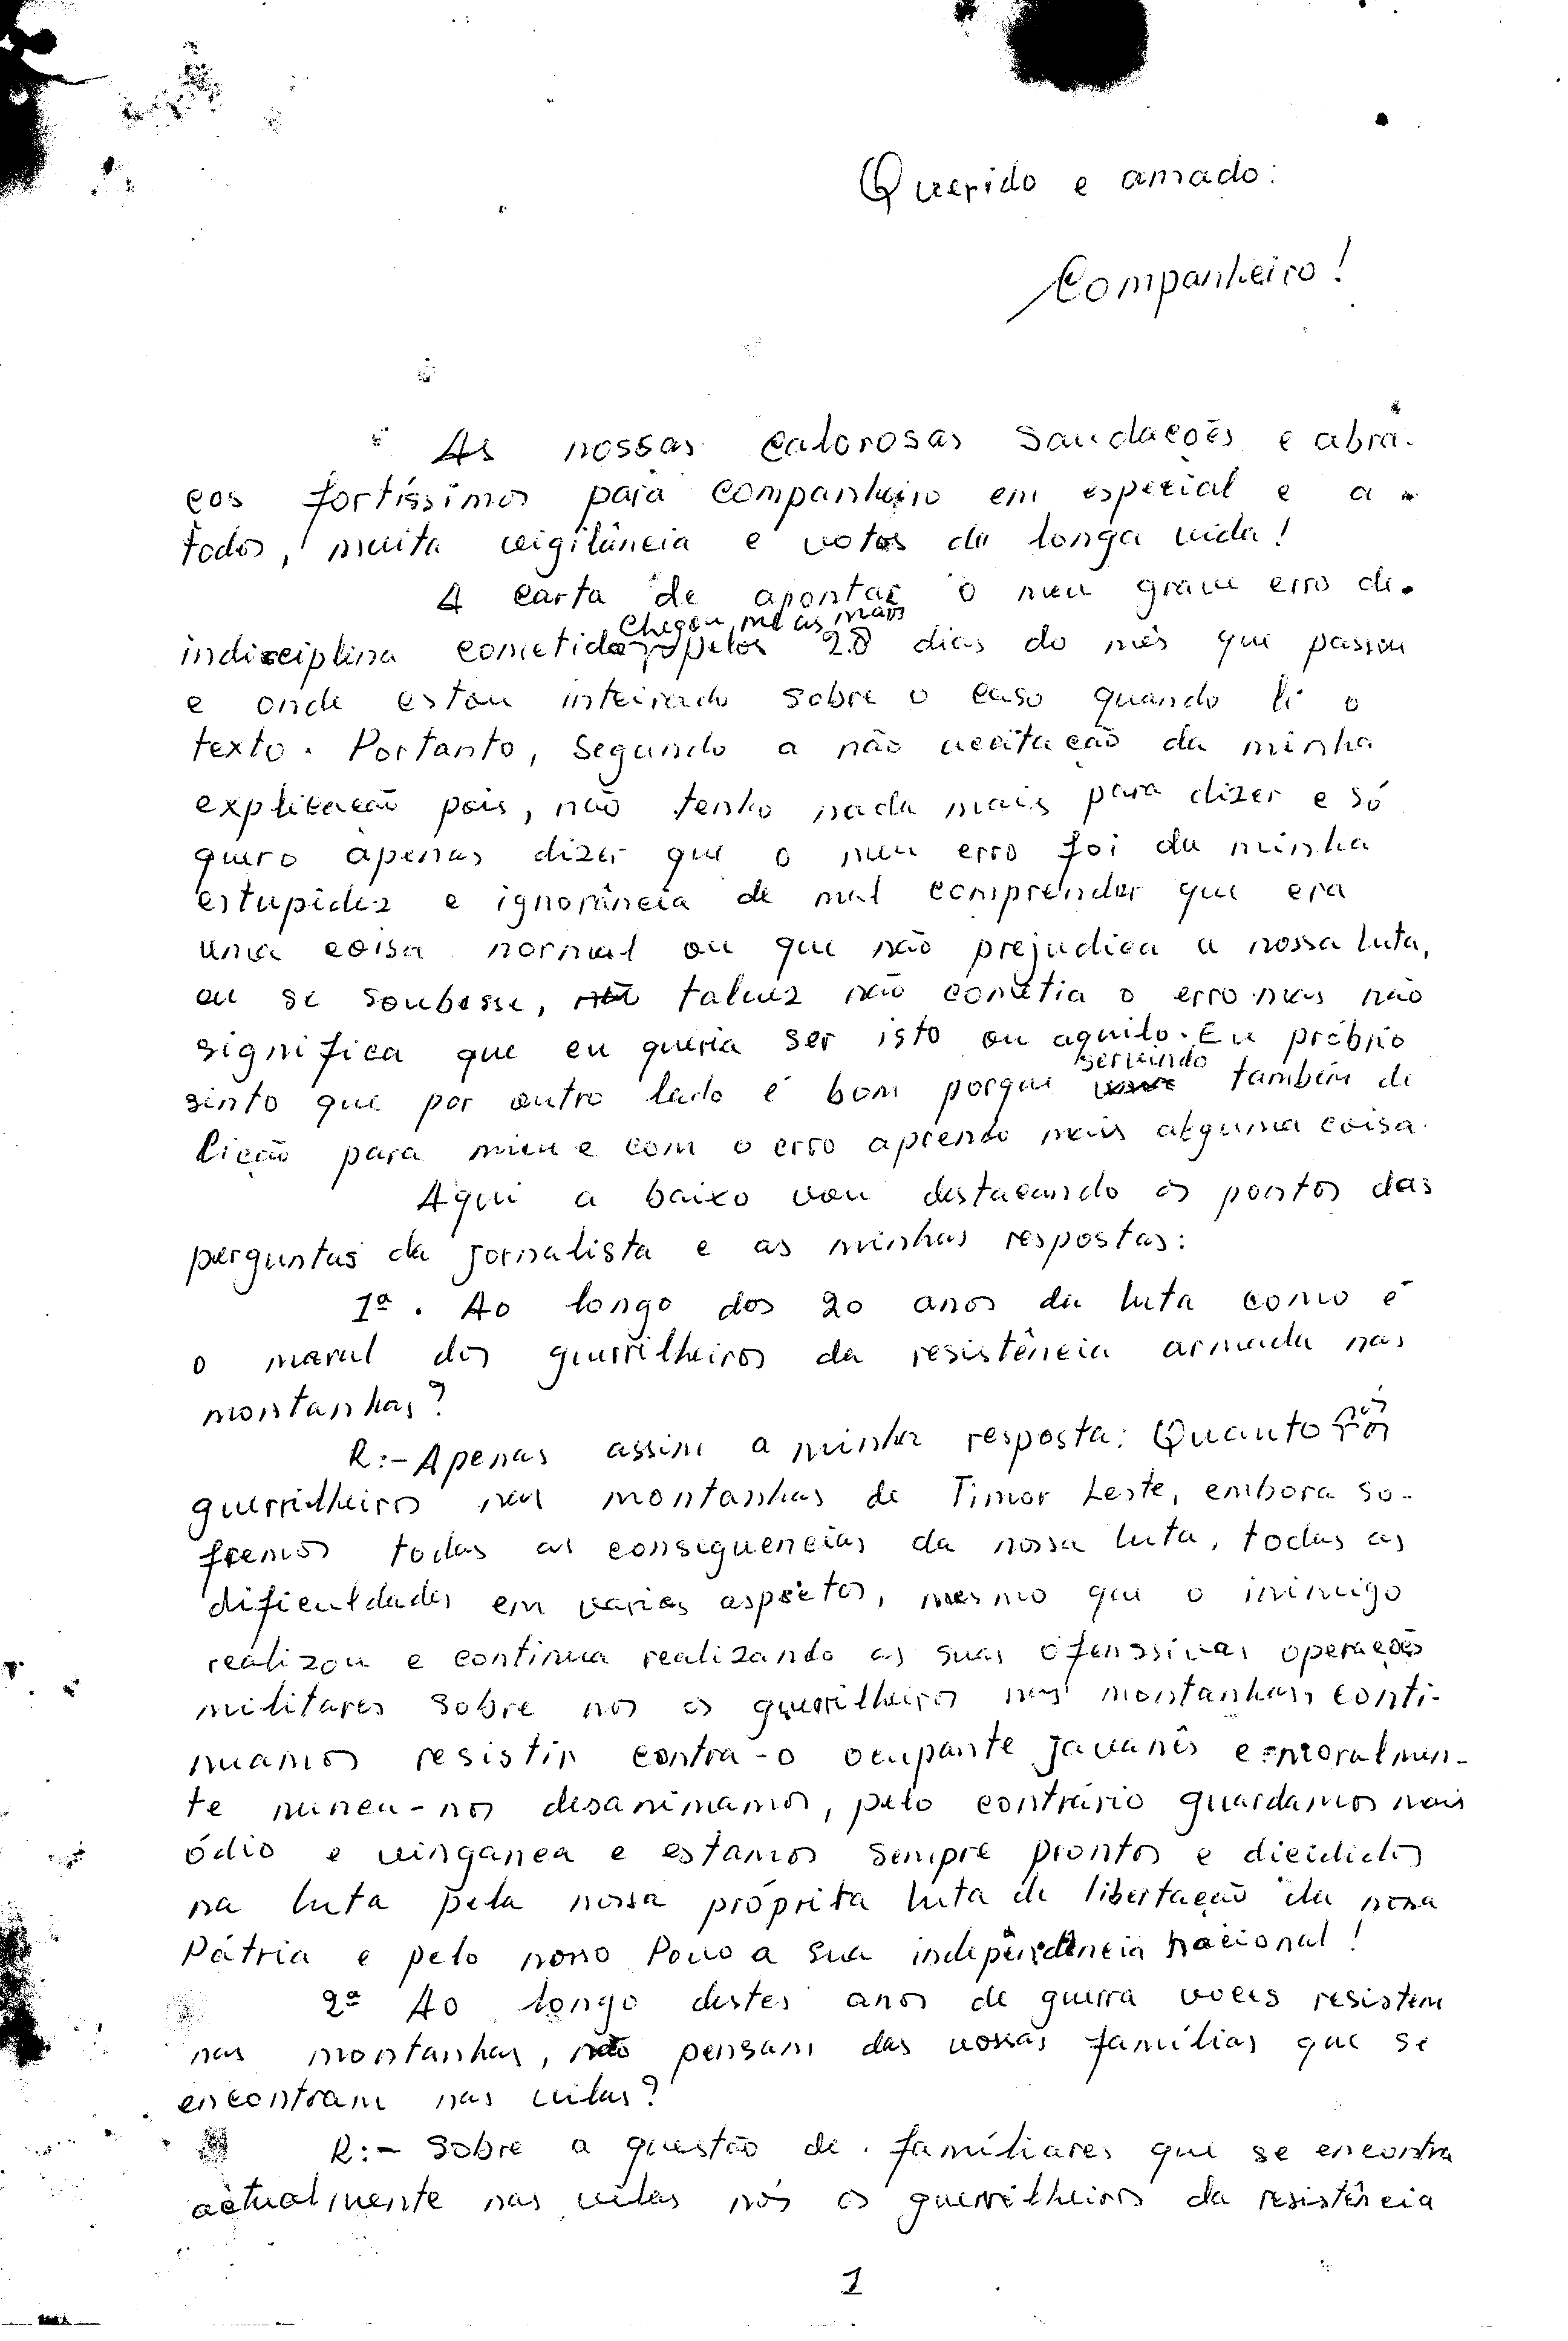 Querido e amado:
Companheiro!
As nossas calorosas saudações e abra-
ços fortíssimos para companheiro em especial e a
todos, muita vigilância e votos de longa vida!
A carta de apontar o meu grave erro de
chegou me as mãos
indisciplina cometido pelos 28 dias do mês que passou
e onde estou inteirado sobre o caso quando li o
texto. Portanto, segundo a não aceitação da minha
explicação pois, não tenho nada mais para dizer e só
quero apenas dizer que o meu erro foi da minha
estupidez e ignorância de mal comprender que era
uma coisa normal ou que não prejudica a nossa luta,
ou se soubesse, não talvez não cometia o erro mas não
significa que eu queria ser isto ou aquilo. Eu próbrio
servindo
sinto que por outro lado é bom porque também de
lição para mim e com o erro aprendo mais alguma coisa.
Aqui a baixo vou destacando os pontos das
perguntas da jornalista e as minhas respostas:
1ª. Ao longo dos 20 anos da luta como é
o moral dos guerrilheiros da resistência armada nas
montanhas?
R:- Apenas assim a minha resposta: Quanto nós
guerrilheiros nas montanhas de Timor Leste, embora so-
fremos todas as consequencias da nossa luta, todas as
dificuldades em varios aspectos, mesmo que o inimigo
realizou e continua realizando as suas ofenssivas operações
militares sobre nos os guerrilheiros nas montanhas conti-
nuamos resistir contra-o ocupante javanês e moralmen-
te nunca-nos desanimamos, pelo contrário guardamos mais
ódio e vingança e estamos sempre prontos e dicididos
na luta pela nossa próprita luta de libertação da nossa
Pátria e pelo nosso Povo a sua indepêndência nacional!
2ª Ao longo destes anos de guerra voces resistem
nas montanhas, não pensam das vossas famílias que se
encontram nas vilas?
R:- Sobre a questão de famíliares que se encontra
actualmente nas vilas nós os guerrilheiros da resistência
1